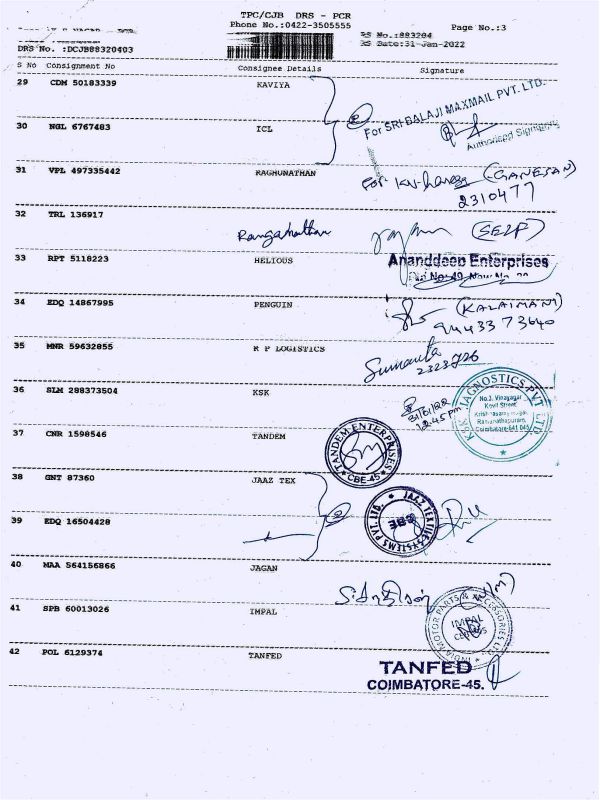 TPC/CJB DRS - PCR
Phone No.:0422-3505555
Page No.:3
RS No.:883204
RS Date:31-Jan-2022
DRS No. :DCJB88320403
S No Consignment No Consignee Details Signature
29 CDM 50183339 KAVIYA
For SRI BALAJI MAXMAIL PVT. LTD.
Authorised Signatory
30 NGL 6767483 ICL
31 VPL 497335442 RAGHUNATHAN
For (GANESAN)
2310477
32 TRL 136917
Ranganathan (SELF)
33 RPT 5118223 HELIOUS
Ananddeep Enterprises
34 EDQ 14867995 PENGUIN
(KALAIMANI)
9443373640
35 MNR 59632855 R P LOGISTICS
36 SLM 288373504 KSK
31/01/22
12.45pm
KSK DIAGNOSTICS PVT LTD
No.3, Vinayagar
Kovil Street,
Ramanathapuram,
Coimbatore-641 045
37 CNR 1598546 TANDEM
TANDEM ENTERPRISES
CBE-45
38 GNT 87360 JAAZ TEX
JAAZ TEXTILE SYSTEMS PVT. LTD.
CBE
39 EDQ 16504428
40 MAA 564156866 JAGAN
41 SPB 60013026 IMPAL
INDIA MOTOR PARTS & ACCESSORIES LTD
IMPAL
42 POL 6129374 TANFED
TANFED
COIMBATORE-45.